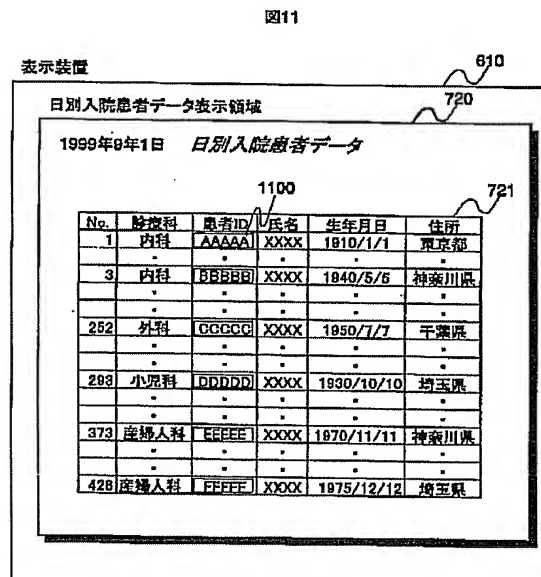 図11
表示装置
610
日別入院患者データ表示領域
720
1999年9月1日 日別入院患者データ
1100
721
No. 診療科 患者ID 氏名 生年月日 住所
1 内科 AAAAA XXXX 1910/1/1 東京都
・ ・ ・ ・ ・
3 内科 BBBBB XXXX 1940/5/5 神奈川県
・ ・ ・ ・ ・
・ ・ ・ ・ ・
252 外科 CCCCC XXXX 1950/7/7 千葉県
・ ・ ・ ・ ・
・ ・ ・ ・ ・
293 小児科 DDDDD XXXX 1930/10/10 埼玉県
・ ・ ・ ・ ・
・ ・ ・ ・ ・
373 産婦人科 EEEEE XXXX 1970/11/11 神奈川県
・ ・ ・ ・ ・
・ ・ ・ ・ ・
428 産婦人科 FFFFF XXXX 1975/12/12 埼玉県